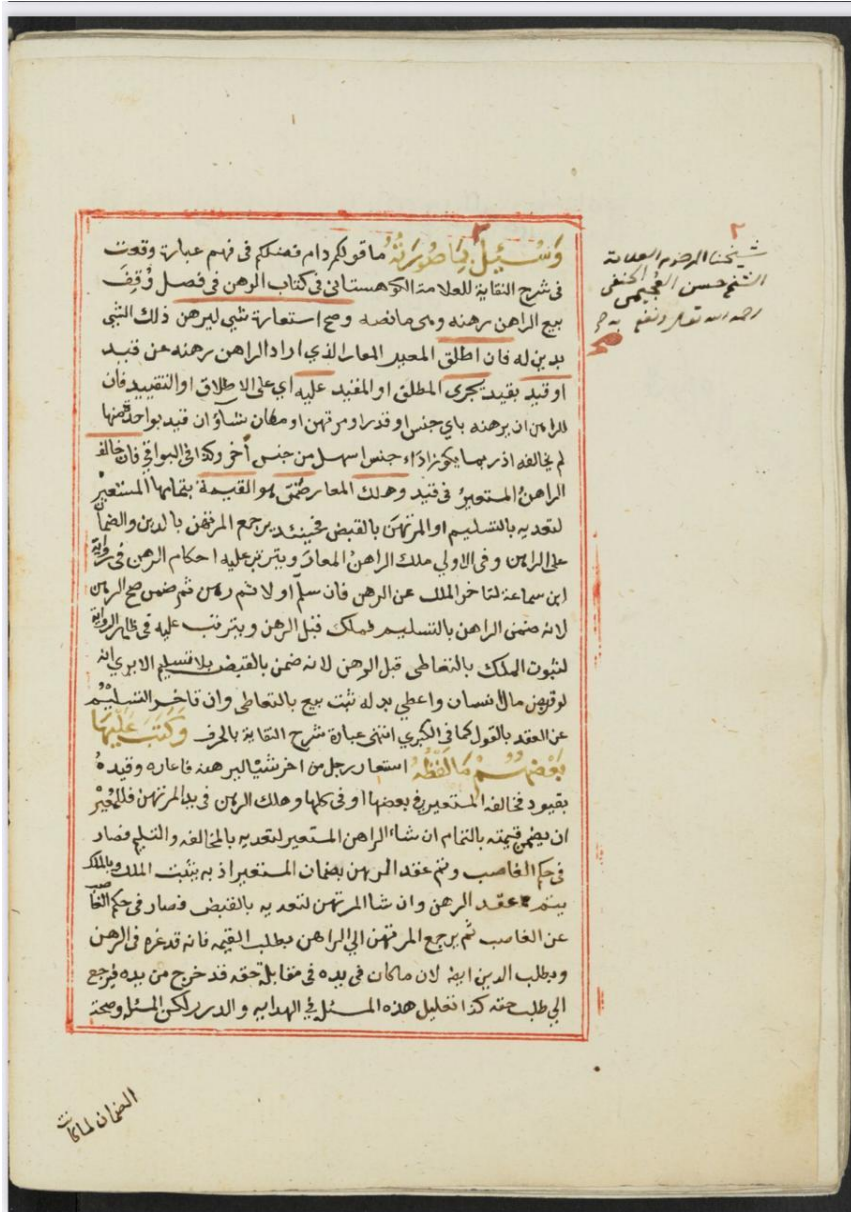 وَسُئِلَ بِمَا صُورَتُهُ ما قولكم دام فضلكم فى فهم عبارة وقعت
فى شرح النقاية للعلامة الكوهستانى فى كتاب الرهن فى فصل وُقِفَ
بيع الراهن رهنه وهى ما نصه وصح استعارة شئ ليرهن ذلك الشئ
بدين له فان اطلق المعير المعار الذي اراد الراهن رهنه عن قيد
او قيد بقيد يجرى المطلق او المقيد عليه اي على الاطلاق او التقييد فان
للراهن ان يرهنه باي جنس او قدر او مرتهن او مكان شاؤ ان قيد بواحد منها
لم يخالفه اذ ربما يكون اداء جنس اسهل من جنس أخر وكذا فى البواقي فان خالف
الراهنُ المستعيرُ فى قيد وهلك المعار ضمّن هو القيمة بتمامها المستعيرُ
لتعديه بالتسليم او المرتهنَ بالقبض فحينئد يرجع المرتهن بالدين والضمان
على الراهن وفى الاولي ملك الراهن المعارَ ويترتب عليه احكام الرهن فى رواية
ابن سماعة لتاخر الملك عن الرهن فان سلّم اولا ثم رهن ثم ضمن صح الرهن
لانه ضمن الراهن بالتسليم فملك قبل الرهن ويترتب عليه فى ظاهر الرواية
لثبوت الملك بالتعاطى قبل الرهن لانه ضمن بالقبض بلا تسليم الا يري انه
لو قبض مال انسان واعطي بدله ثبت بيع بالتعاطى وان تاخر التسليم
عن العقد بالقول كما فى الكبري انتهى عبارة شرح النقاية بالحرف وَكَتَبَ عَلَيْهَا
بَعْضُهُمْ مَا لَفْظُهُ استعار رجل من اخر شيئا ليرهنه فاعاره وقيدهُ
بقيود فخالفه المستعير فى بعضها او فى كلها وهلك الرهن فى يد المرتهن فللمعير
ان يضمن قيمته بالتمام ان شاء الراهن المستعير لتعديه بالمخالفه والتسليم فصار
فى حكم الغاصب وتم عقد الرهن بضمان المستعير اذ به يثبت الملك وبالملك
يتم عقد الرهن وان شا المرتهن لتعديه بالقبض فصار فى حكم الغاصب
عن الغاصب ثم يرجع المرتهن الي الراهن بطلب القيمه فانه قد غره فى الرهن
وبطلب الدين ايضا لان ما كان فى يده فى مقابلة حقه قد خرج من يده فيرجع
الي طلب حقه كذا تعليل هذه المسئله فى الهدايه والدرر لكن المسئله وصحة
الضمان لما كانت
٢
شيخنا المرحوم العلامة
الشيخ حسن العجيمى الحنفى
رحمه الله تعالى ونفع به